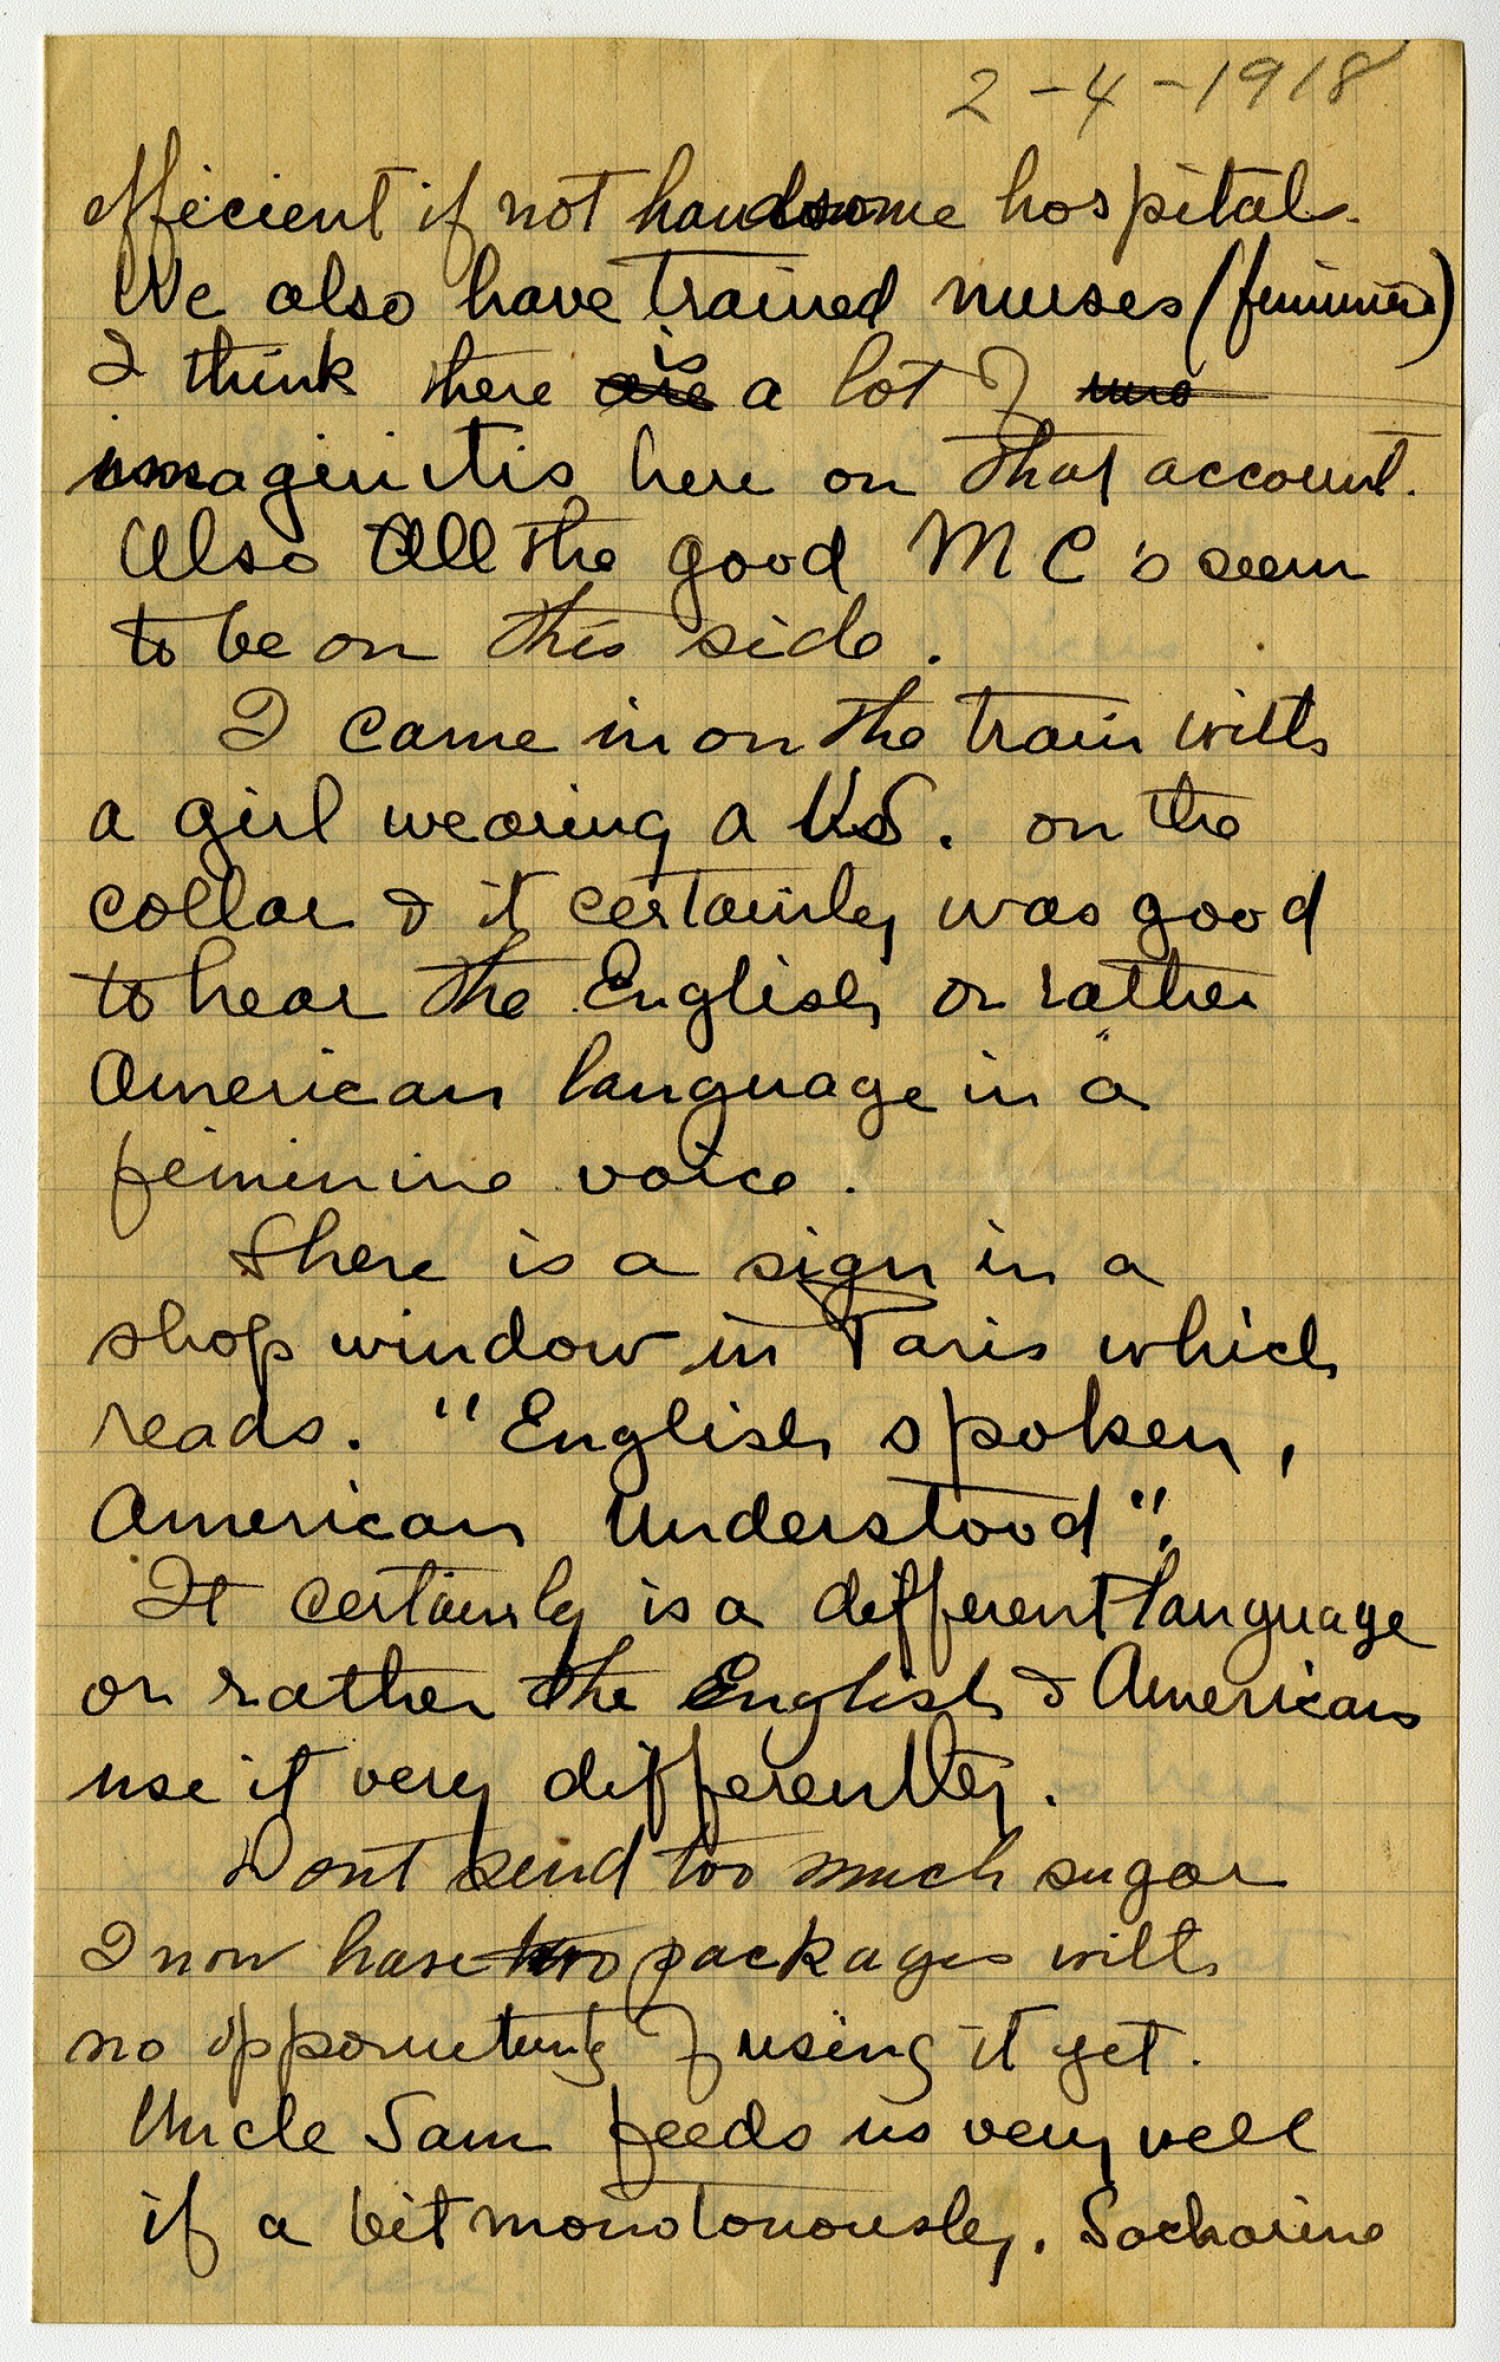 2-4-1918
efficient if not handsome hospitals.
We also have trained nurses (feminine)
I think there are is a lot of
imaginitis here on that account.
Also All the good M C's seem
to be on this side.
I came in on the train with
a girl wearing a US. on the
collar & it certainly was good
to hear the English or rather
American language in a
feminine voice.
There is a sign in a
shop window in Paris which
reads. "English spoken,
American Understood".
It certainly is a different language
or rather the English & Americans
use it very differently.
Dont send too much sugar
I now have two packages with
no opportunity of using it yet.
Uncle Sam feeds us very well
if a bit monotonously. Sacharine